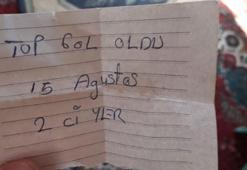 TOP GOL OLDU
15 Agustos
2 Cİ YER